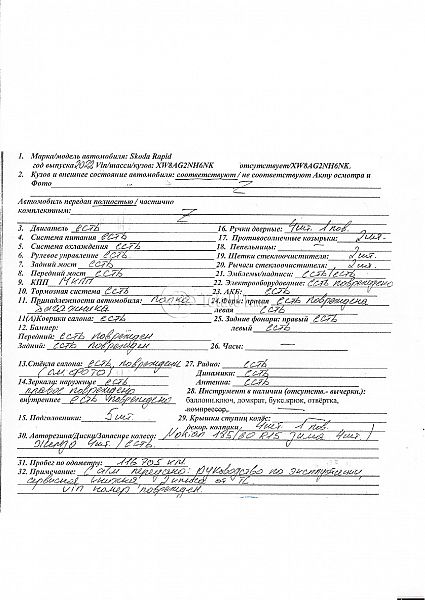 1. Марка/модель автомобиля: Skoda Rapid
год выпуска 2022, Vin/масси/кузов: XW8AG2NH6NK отсутствует/XW8AG2NH6NK.
2. Кузов и внешнее состояние автомобиля: соответствуют / не соответствуют Акту осмотра и
Фото Z
Автомобиль передан полностью / частично
комплектным: Z
3. Двигатель есть
4. Система питания есть
5. Система охлаждения есть
6. Рулевое управление есть
7. Задний мост есть
8. Передний мост есть
9. КПП МКПП
10. Тормозная система есть
11. Принадлежности автомобиля: полка
багажника
11(А)Коврики салона: есть
12. Бампер:
Передний: есть поврежден
Задний: есть поврежден
13. Стёкла салона: есть, поврежден
(см. фото)
14. Зеркала: наружные есть
правое повреждено
внутреннее есть повреждено
15. Подголовники: 5 шт.
16. Ручки дверные: 4шт. 1 пов.
17. Противосолнечные козырьки: 2шт.
18. Пепельницы:
19. Щетки стеклоочистителя: 2шт.
20. Рычаги стеклоочистителя: 2шт.
21. Эмблемы/надписи: есть/есть
22. Электрооборудование: есть повреждено
23. АКБ: есть
24. Фары: правая есть повреждена
левая есть
25. Задние фонари: правый есть
левый есть
26. Часы:
27. Радио: есть
Динамики: есть
Антенна: есть
28. Инструмент в наличии (отсутств.- вычерки.):
баллонн.ключ, домкрат, букс.крюк, отвёртка,
компрессор,
29. Крышки ступиц колёс:
декор. колпаки, 4шт. 1 пов.
30. Авторезина/Диски/Запасное колесо: Nokian 185/60 R15 зима 4шт.
31. Пробег по одометру: 116705 км.
32. Примечание: с а/м передано: руководство по эксплуатации,
сервисная книжка
VIN номер поврежден.